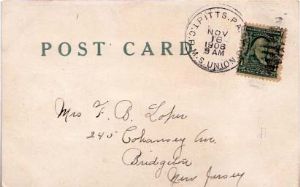 POST CARD
PITTS, PA.
NOV
16
1908
9 AM
W.S. UNION
Mrs F. B. Loper
240 Cohansey Ave.
Bridgeton
New Jersey